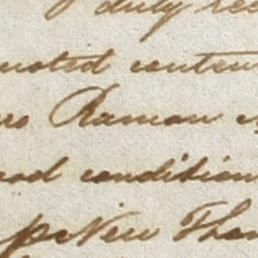 duly rec
uoted conten
ro Ramon
ood condition
New Tha